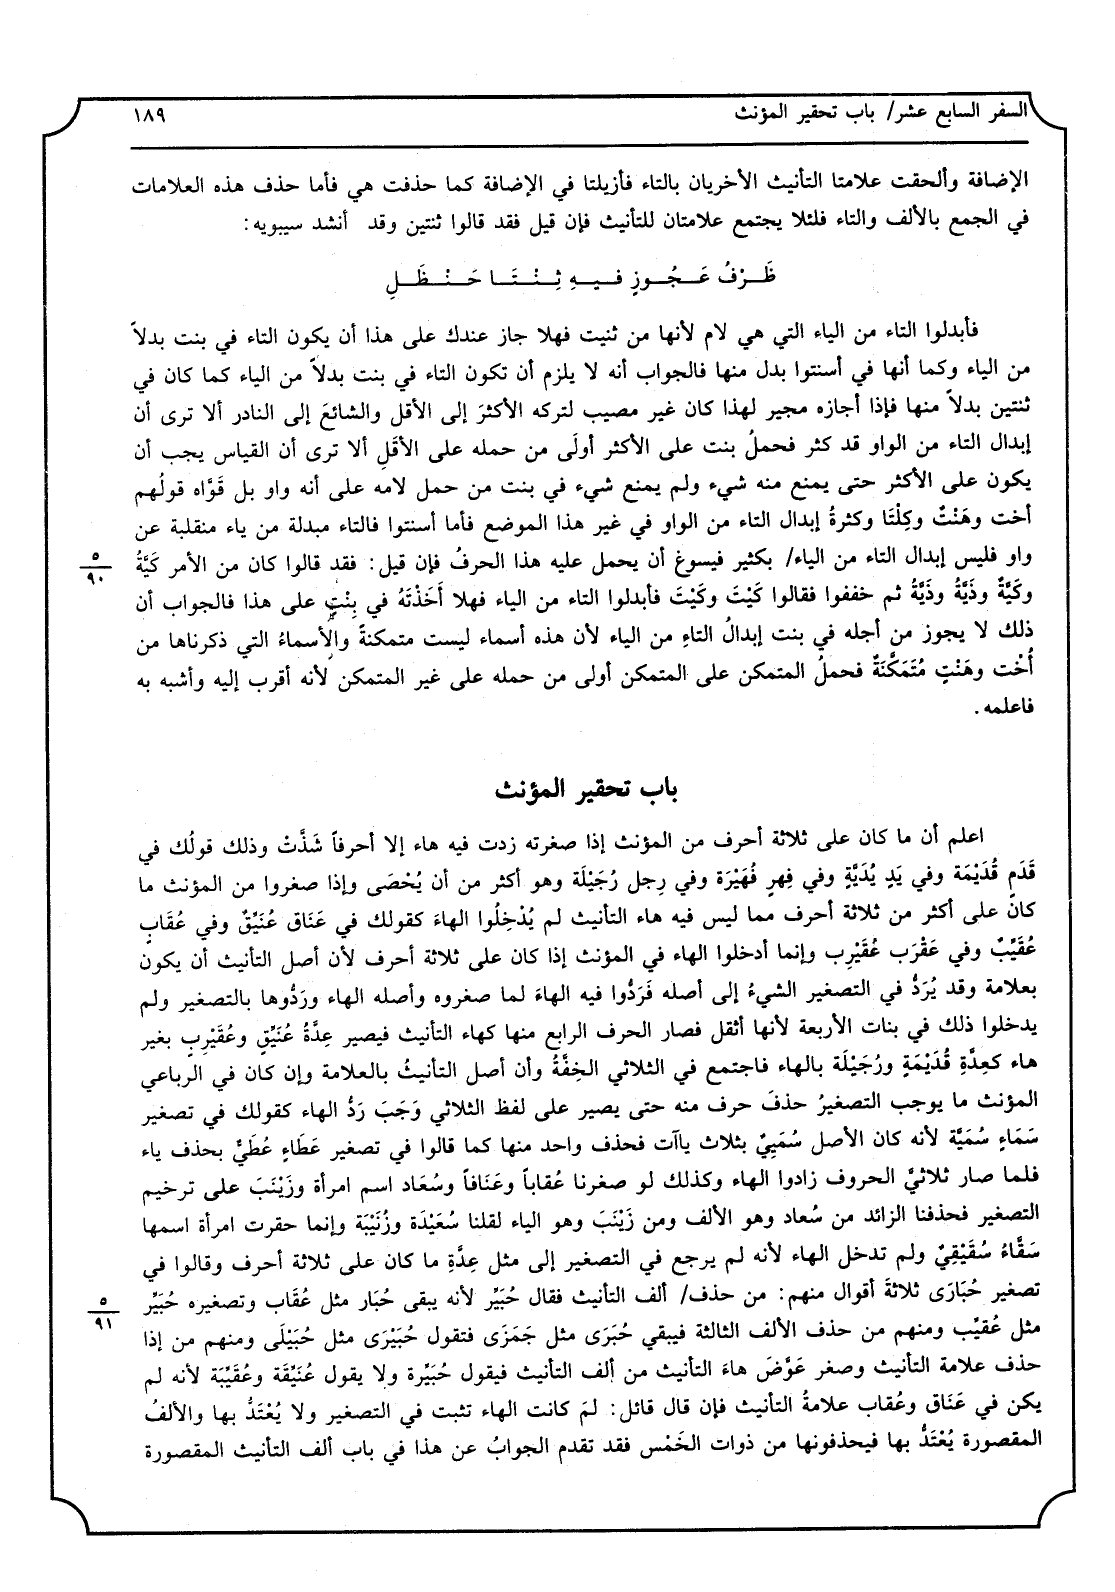 السفر السابع عشر/ باب تحقير المؤنث
١٨٩
الإضافة وألحقت علامتا التأنيث الأخريان بالتاء فأزيلتا في الإضافة كما حذفت هي فأما حذف هذه العلامات
في الجمع بالألف والتاء فلئلا يجتمع علامتان للتأنيث فإن قيل فقد قالوا ثنتين وقد أنشد سيبويه:
ظَرْفُ عَجُوزٍ فيهِ ثِنْتَا حَنْظَلِ
فأبدلوا التاء من الياء التي هي لام لأنها من ثنيت فهلا جاز عندك على هذا أن يكون التاء في بنت بدلاً
من الياء وكما أنها في أسنتوا بدل منها فالجواب أنه لا يلزم أن تكون التاء في بنت بدلاً من الياء كما كان في
ثنتين بدلاً منها فإذا أجازه مجير لهذا كان غير مصيب لتركه الأكثرَ إلى الأقل والشائعَ إلى النادر ألا ترى أن
إبدال التاء من الواو قد كثر فحملُ بنت على الأكثر أولَى من حمله على الأقَلِ ألا ترى أن القياس يجب أن
يكون على الأكثر حتى يمنع منه شيء ولم يمنع شيء في بنت من حمل لامه على أنه واو بل قَوَّاه قولُهم
أخت وهَنْتٌ وكِلْتَا وكثرةُ إبدال التاء من الواو في غير هذا الموضع فأما أسنتوا فالتاء مبدلة من ياء منقلبة عن
واو فليس إبدال التاء من الياء/ بكثير فيسوغ أن يحمل عليه هذا الحرفُ فإن قيل: فقد قالوا كان من الأمر كَيَّةُ
٥
٩٠
وكَيَّةٌ وذَيَّةُ وذَيَّةُ ثم خففوا فقالوا كَيْتَ وكَيْتَ فأبدلوا التاء من الياء فهلا أَخَذْتَهُ في بِنْتٍ على هذا فالجواب أن
ذلك لا يجوز من أجله في بنت إبدالُ التاءِ من الياء لأن هذه أسماء ليست متمكنةً والأسماءُ التي ذكرناها من
أُخْت وهَنْتٍ مُتَمَكَّنَةٌ فحملُ المتمكن على المتمكن أولى من حمله على غير المتمكن لأنه أقرب إليه وأشبه به
فاعلمه.
باب تحقير المؤنث
اعلم أن ما كان على ثلاثة أحرف من المؤنث إذا صغرته زدت فيه هاء إلا أحرفاً شَذَّتْ وذلك قولُك في
قَدَمٍ قُدَيْمَة وفي يَدٍ يُدَيَّةٍ وفي فِهرٍ فُهَيْرَة وفي رِجل رُجَيْلَة وهو أكثر من أن يُحْصَى وإذا صغروا من المؤنث ما
كان على أكثر من ثلاثة أحرف مما ليس فيه هاء التأنيث لم يُدْخِلُوا الهاءَ كقولك في عَنَاق عُنَيِّقٌ وفي عُقَابٍ
عُقَيِّبٌ وفي عَقْرَب عُقَيْرِب وإنما أدخلوا الهاء في المؤنث إذا كان على ثلاثة أحرف لأن أصل التأنيث أن يكون
بعلامة وقد يُرَدُّ في التصغير الشيءُ إلى أصله فَرَدُّوا فيه الهاءَ لما صغروه وأصله الهاء ورَدُّوها بالتصغير ولم
يدخلوا ذلك في بنات الأربعة لأنها أثقل فصار الحرف الرابع منها كهاء التأنيث فيصير عِدَّةُ عُنَيِّقٍ وعُقَيْرِبٍ بغير
هاء كعِدَّةِ قُدَيْمَةٍ ورُجَيْلَة بالهاء فاجتمع في الثلاثي الخِفَّةُ وأن أصل التأنيثُ بالعلامة وإن كان في الرباعي
المؤنث ما يوجب التصغيرُ حذفَ حرف منه حتى يصير على لفظ الثلاثي وَجَبَ رَدُّ الهاء كقولك في تصغير
سَمَاءٍ سُمَيَّة لأنه كان الأصل سُمَيِيٌ بثلاث ياآت فحذف واحد منها كما قالوا في تصغير عَطَاءٍ عُطَيٍّ بحذف ياء
فلما صار ثلاثيَّ الحروف زادوا الهاء وكذلك لو صغرنا عُقاباً وعَنَافاً وسُعَاد اسم امرأة وزَيْنَبَ على ترخيم
التصغير فحذفنا الزائد من سُعاد وهو الألف ومن زَيْنَبَ وهو الياء لقلنا سُعَيْدَة وزُنَيْبَة وإنما حقرت امرأة اسمها
سَقَّاءُ سُقَيْقِيٌ ولم تدخل الهاء لأنه لم يرجع في التصغير إلى مثل عِدَّةِ ما كان على ثلاثة أحرف وقالوا في
تصغير حُبَارَى ثلاثةَ أقوال منهم: من حذف/ ألف التأنيث فقال حُبَيِّر لأنه يبقى حُبَار مثل عُقَاب وتصغيره حُبَيِّر
٥
٩١
مثل عُقيِّب ومنهم من حذف الألف الثالثة فيبقي حُبَرَى مثل جَمَزَى فتقول حُبَيْرَى مثل حُبَيْلَى ومنهم من إذا
حذف علامة التأنيث وصغر عَوَّضَ هاءَ التأنيث من ألف التأنيث فيقول حُبَيِّرة ولا يقول عُنَيِّقَة وعُقَيِّبَة لأنه لم
يكن في عَنَاق وعُقاب علامةُ التأنيث فإن قال قائل: لمَ كانت الهاء تثبت في التصغير ولا يُعْتَدُّ بها والألفُ
المقصورة يُعْتَدُّ بها فيحذفونها من ذوات الخَمْس فقد تقدم الجوابُ عن هذا في باب ألف التأنيث المقصورة